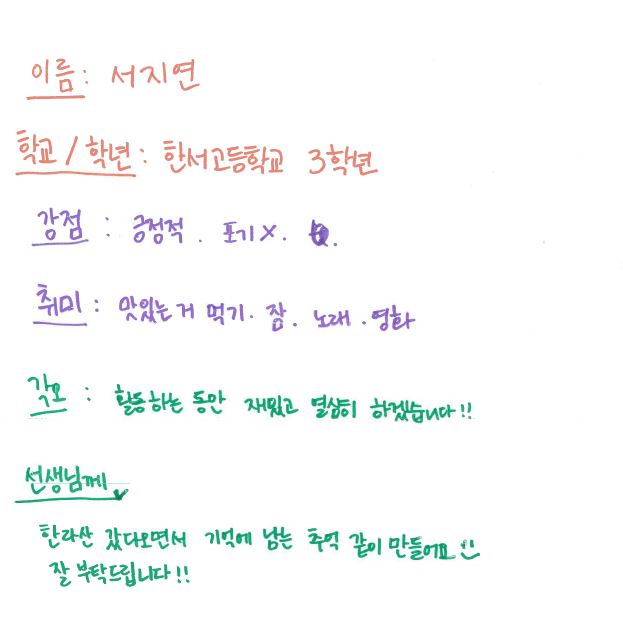 이름: 서지연
학교/학년: 한서고등학교 3학년
강점: 긍정적. 포기X.
취미: 맛있는거 먹기. 잠. 노래. 영화
각오: 활동하는 동안 재밌고 열심히 하겠습니다!!
선생님께
한라산 갔다오면서 기억에 남는 추억 같이 만들어요
잘 부탁드립니다!!